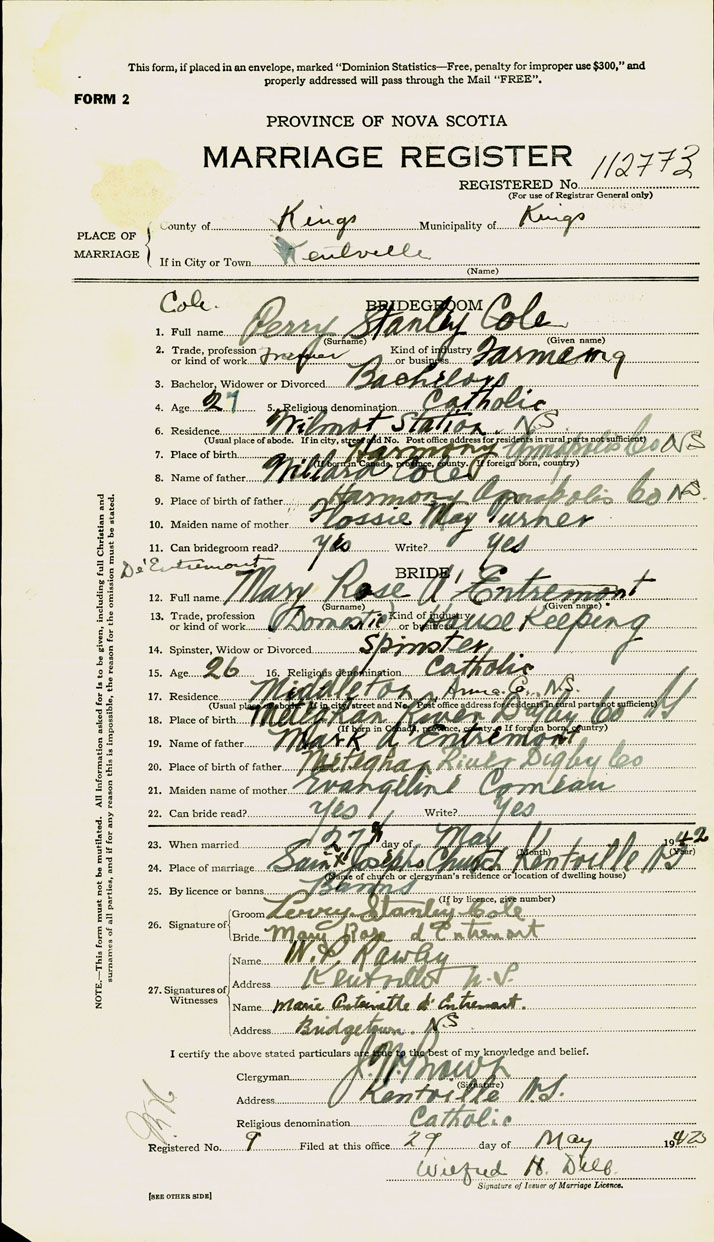 This form, if placed in an envelope, marked "Dominion Statistics—Free, penalty for improper use $300," and
properly addressed will pass through the Mail "FREE".
FORM 2
PROVINCE OF NOVA SCOTIA
MARRIAGE REGISTER 112773
REGISTERED No.
(For use of Registrar General only)
PLACE OF MARRIAGE
County of Kings Municipality of Kings
If in City or Town Kentville
(Name)
Cole. BRIDEGROOM
1. Full name Perry Stanley Cole
(Surname) (Given name)
2. Trade, profession or kind of work Kind of industry or business Farming
3. Bachelor, Widower or Divorced Bachelor
4. Age 27 5. Religious denomination Catholic
6. Residence Wilmot Station. NS
(Usual place of abode. If in city, street and No. Post office address for residents in rural parts not sufficient)
7. Place of birth Harmony Annapolis Co NS
(If born in Canada, province, county. If foreign born, country)
8. Name of father Willard Cole
9. Place of birth of father Harmony Annapolis Co NS.
10. Maiden name of mother Flossie May Turner
11. Can bridegroom read? Yes Write? yes
De'Entremont BRIDE
12. Full name Mary Rose d'Entremont
(Surname) (Given name)
13. Trade, profession or kind of work Domestic Kind of industry or business House Keeping
14. Spinster, Widow or Divorced Spinster
15. Age 26 16. Religious denomination Catholic
17. Residence Middleton, N.S.
(Usual place of abode. If in city, street and No. Post office address for residents in rural parts not sufficient)
18. Place of birth Meteghan River Digby Co NS
(If born in Canada, province, county. If foreign born, country)
19. Name of father Mark d'Entremont
20. Place of birth of father Meteghan River Digby Co
21. Maiden name of mother Evangeline Comeau
22. Can bride read? Yes Write? Yes
23. When married 27th day of May 1942
(Month) (Year)
24. Place of marriage Saint Josephs Church Kentville NS
(Name of church or clergyman's residence or location of dwelling house)
25. By licence or banns Banns
(If by licence, give number)
26. Signature of
Groom Perry Stanley Cole
Bride Mary Rose d'Entremont
27. Signatures of Witnesses
Name W. Rawley
Address Kentville N.S.
Name Marie Antoinette d'Entremont.
Address Bridgetown. NS
I certify the above stated particulars are true to the best of my knowledge and belief.
Clergyman J. H. Brown
(Signature)
Address Kentville N.S.
Religious denomination Catholic
Registered No. 9 Filed at this office 29 day of May 1942
Wilfred H. Dill.
Signature of Issuer of Marriage Licence.
[SEE OTHER SIDE]
NOTE.—This form must not be mutilated. All Information asked for is to be given, including full Christian and
surnames of all parties, and if for any reason this is impossible, the reason for the omission must be stated.